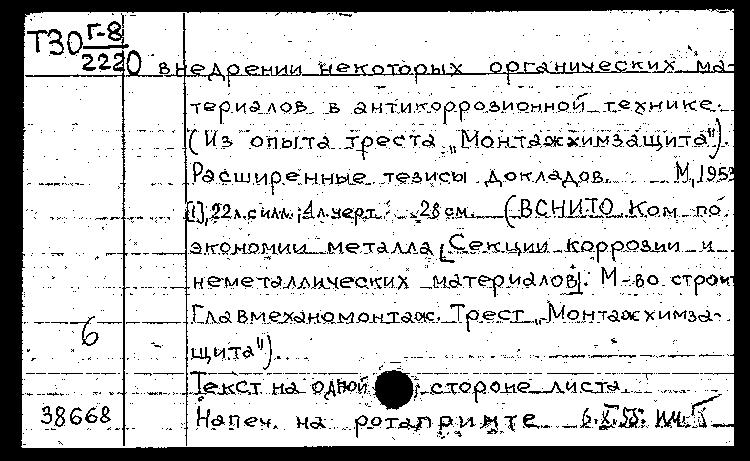 Т30 Г-8
2220
О внедрении некоторых органических ма-
териалов в антикоррозионной технике.
(Из опыта треста „Монтажхимзащита").
Расширенные тезисы докладов. М, 1953
[1], 22 л. с илл.; 4 л. черт. 28 см. (ВСНИТО. Ком по
экономии металла [Секции коррозии и
неметаллических материалов]. М-во строит
Главмеханомонтаж. Трест „Монтажхимза-
6
щита").
Текст на одной стороне листа.
38668
Напеч. на ротапринте 6.X.55.